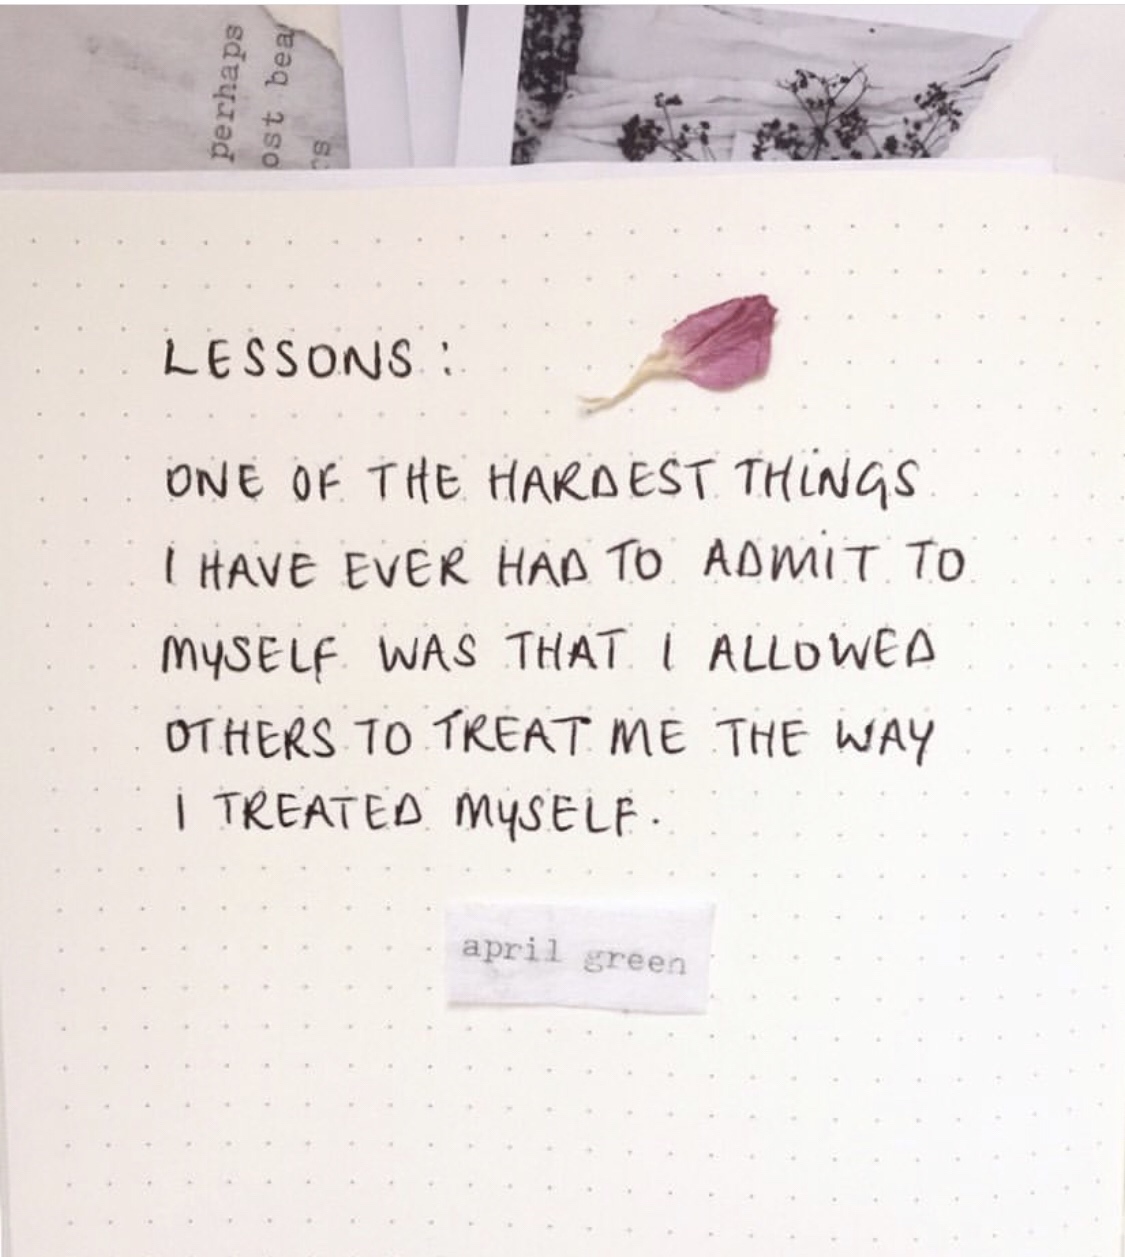 perhaps
ost bea
rs
LESSONS:
ONE OF THE HARDEST THINGS
I HAVE EVER HAD TO ADMIT TO
MYSELF WAS THAT I ALLOWED
OTHERS TO TREAT ME THE WAY
I TREATED MYSELF.
april green